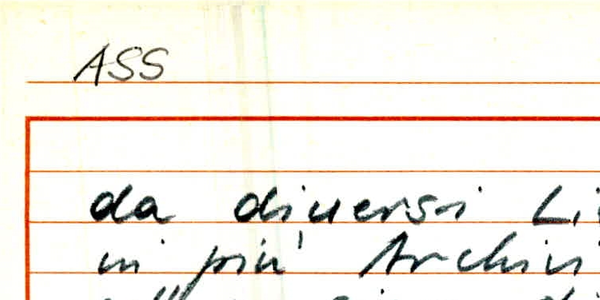 ASS
da diversi Li
in più Archivi